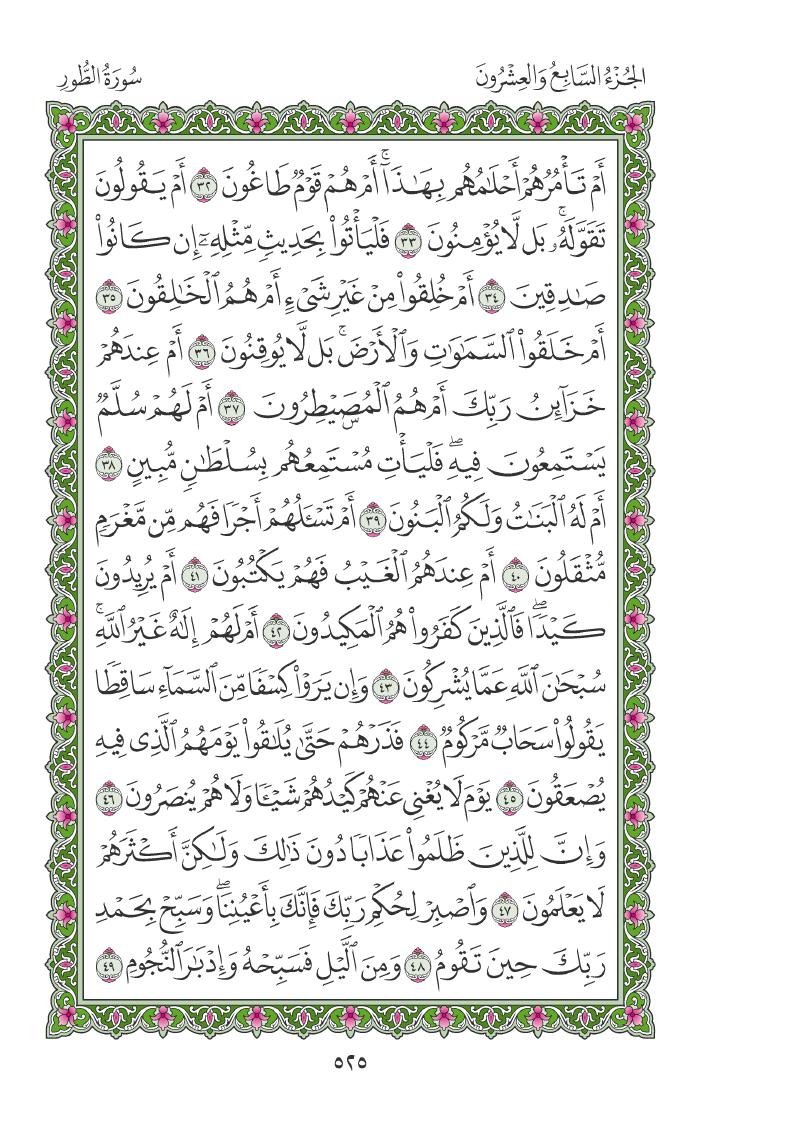 الجُزْءُ السَّابِعُ وَالعِشْرُونَ
سُورَةُ الطُّورِ
أَمْ تَأْمُرُهُمْ أَحْلَٰمُهُم بِهَٰذَآ ۚ أَمْ هُمْ قَوْمٌ طَاغُونَ ٣٢ أَمْ يَقُولُونَ
تَقَوَّلَهُۥ ۚ بَل لَّا يُؤْمِنُونَ ٣٣ فَلْيَأْتُوا۟ بِحَدِيثٍ مِّثْلِهِۦٓ إِن كَانُوا۟
صَٰدِقِينَ ٣٤ أَمْ خُلِقُوا۟ مِنْ غَيْرِ شَىْءٍ أَمْ هُمُ ٱلْخَٰلِقُونَ ٣٥
أَمْ خَلَقُوا۟ ٱلسَّمَٰوَٰتِ وَٱلْأَرْضَ ۚ بَل لَّا يُوقِنُونَ ٣٦ أَمْ عِندَهُمْ
خَزَآئِنُ رَبِّكَ أَمْ هُمُ ٱلْمُصَۣيْطِرُونَ ٣٧ أَمْ لَهُمْ سُلَّمٌ
يَسْتَمِعُونَ فِيهِ ۖ فَلْيَأْتِ مُسْتَمِعُهُم بِسُلْطَٰنٍ مُّبِينٍ ٣٨
أَمْ لَهُ ٱلْبَنَٰتُ وَلَكُمُ ٱلْبَنُونَ ٣٩ أَمْ تَسْـَٔلُهُمْ أَجْرًا فَهُم مِّن مَّغْرَمٍ
مُّثْقَلُونَ ٤٠ أَمْ عِندَهُمُ ٱلْغَيْبُ فَهُمْ يَكْتُبُونَ ٤١ أَمْ يُرِيدُونَ
كَيْدًا ۖ فَٱلَّذِينَ كَفَرُوا۟ هُمُ ٱلْمَكِيدُونَ ٤٢ أَمْ لَهُمْ إِلَٰهٌ غَيْرُ ٱللَّهِ ۚ
سُبْحَٰنَ ٱللَّهِ عَمَّا يُشْرِكُونَ ٤٣ وَإِن يَرَوْا۟ كِسْفًا مِّنَ ٱلسَّمَآءِ سَاقِطًا
يَقُولُوا۟ سَحَابٌ مَّرْكُومٌ ٤٤ فَذَرْهُمْ حَتَّىٰ يُلَٰقُوا۟ يَوْمَهُمُ ٱلَّذِى فِيهِ
يُصْعَقُونَ ٤٥ يَوْمَ لَا يُغْنِى عَنْهُمْ كَيْدُهُمْ شَيْـًٔا وَلَا هُمْ يُنصَرُونَ ٤٦
وَإِنَّ لِلَّذِينَ ظَلَمُوا۟ عَذَابًا دُونَ ذَٰلِكَ وَلَٰكِنَّ أَكْثَرَهُمْ
لَا يَعْلَمُونَ ٤٧ وَٱصْبِرْ لِحُكْمِ رَبِّكَ فَإِنَّكَ بِأَعْيُنِنَا ۖ وَسَبِّحْ بِحَمْدِ
رَبِّكَ حِينَ تَقُومُ ٤٨ وَمِنَ ٱلَّيْلِ فَسَبِّحْهُ وَإِدْبَٰرَ ٱلنُّجُومِ ٤٩
٥٢٥